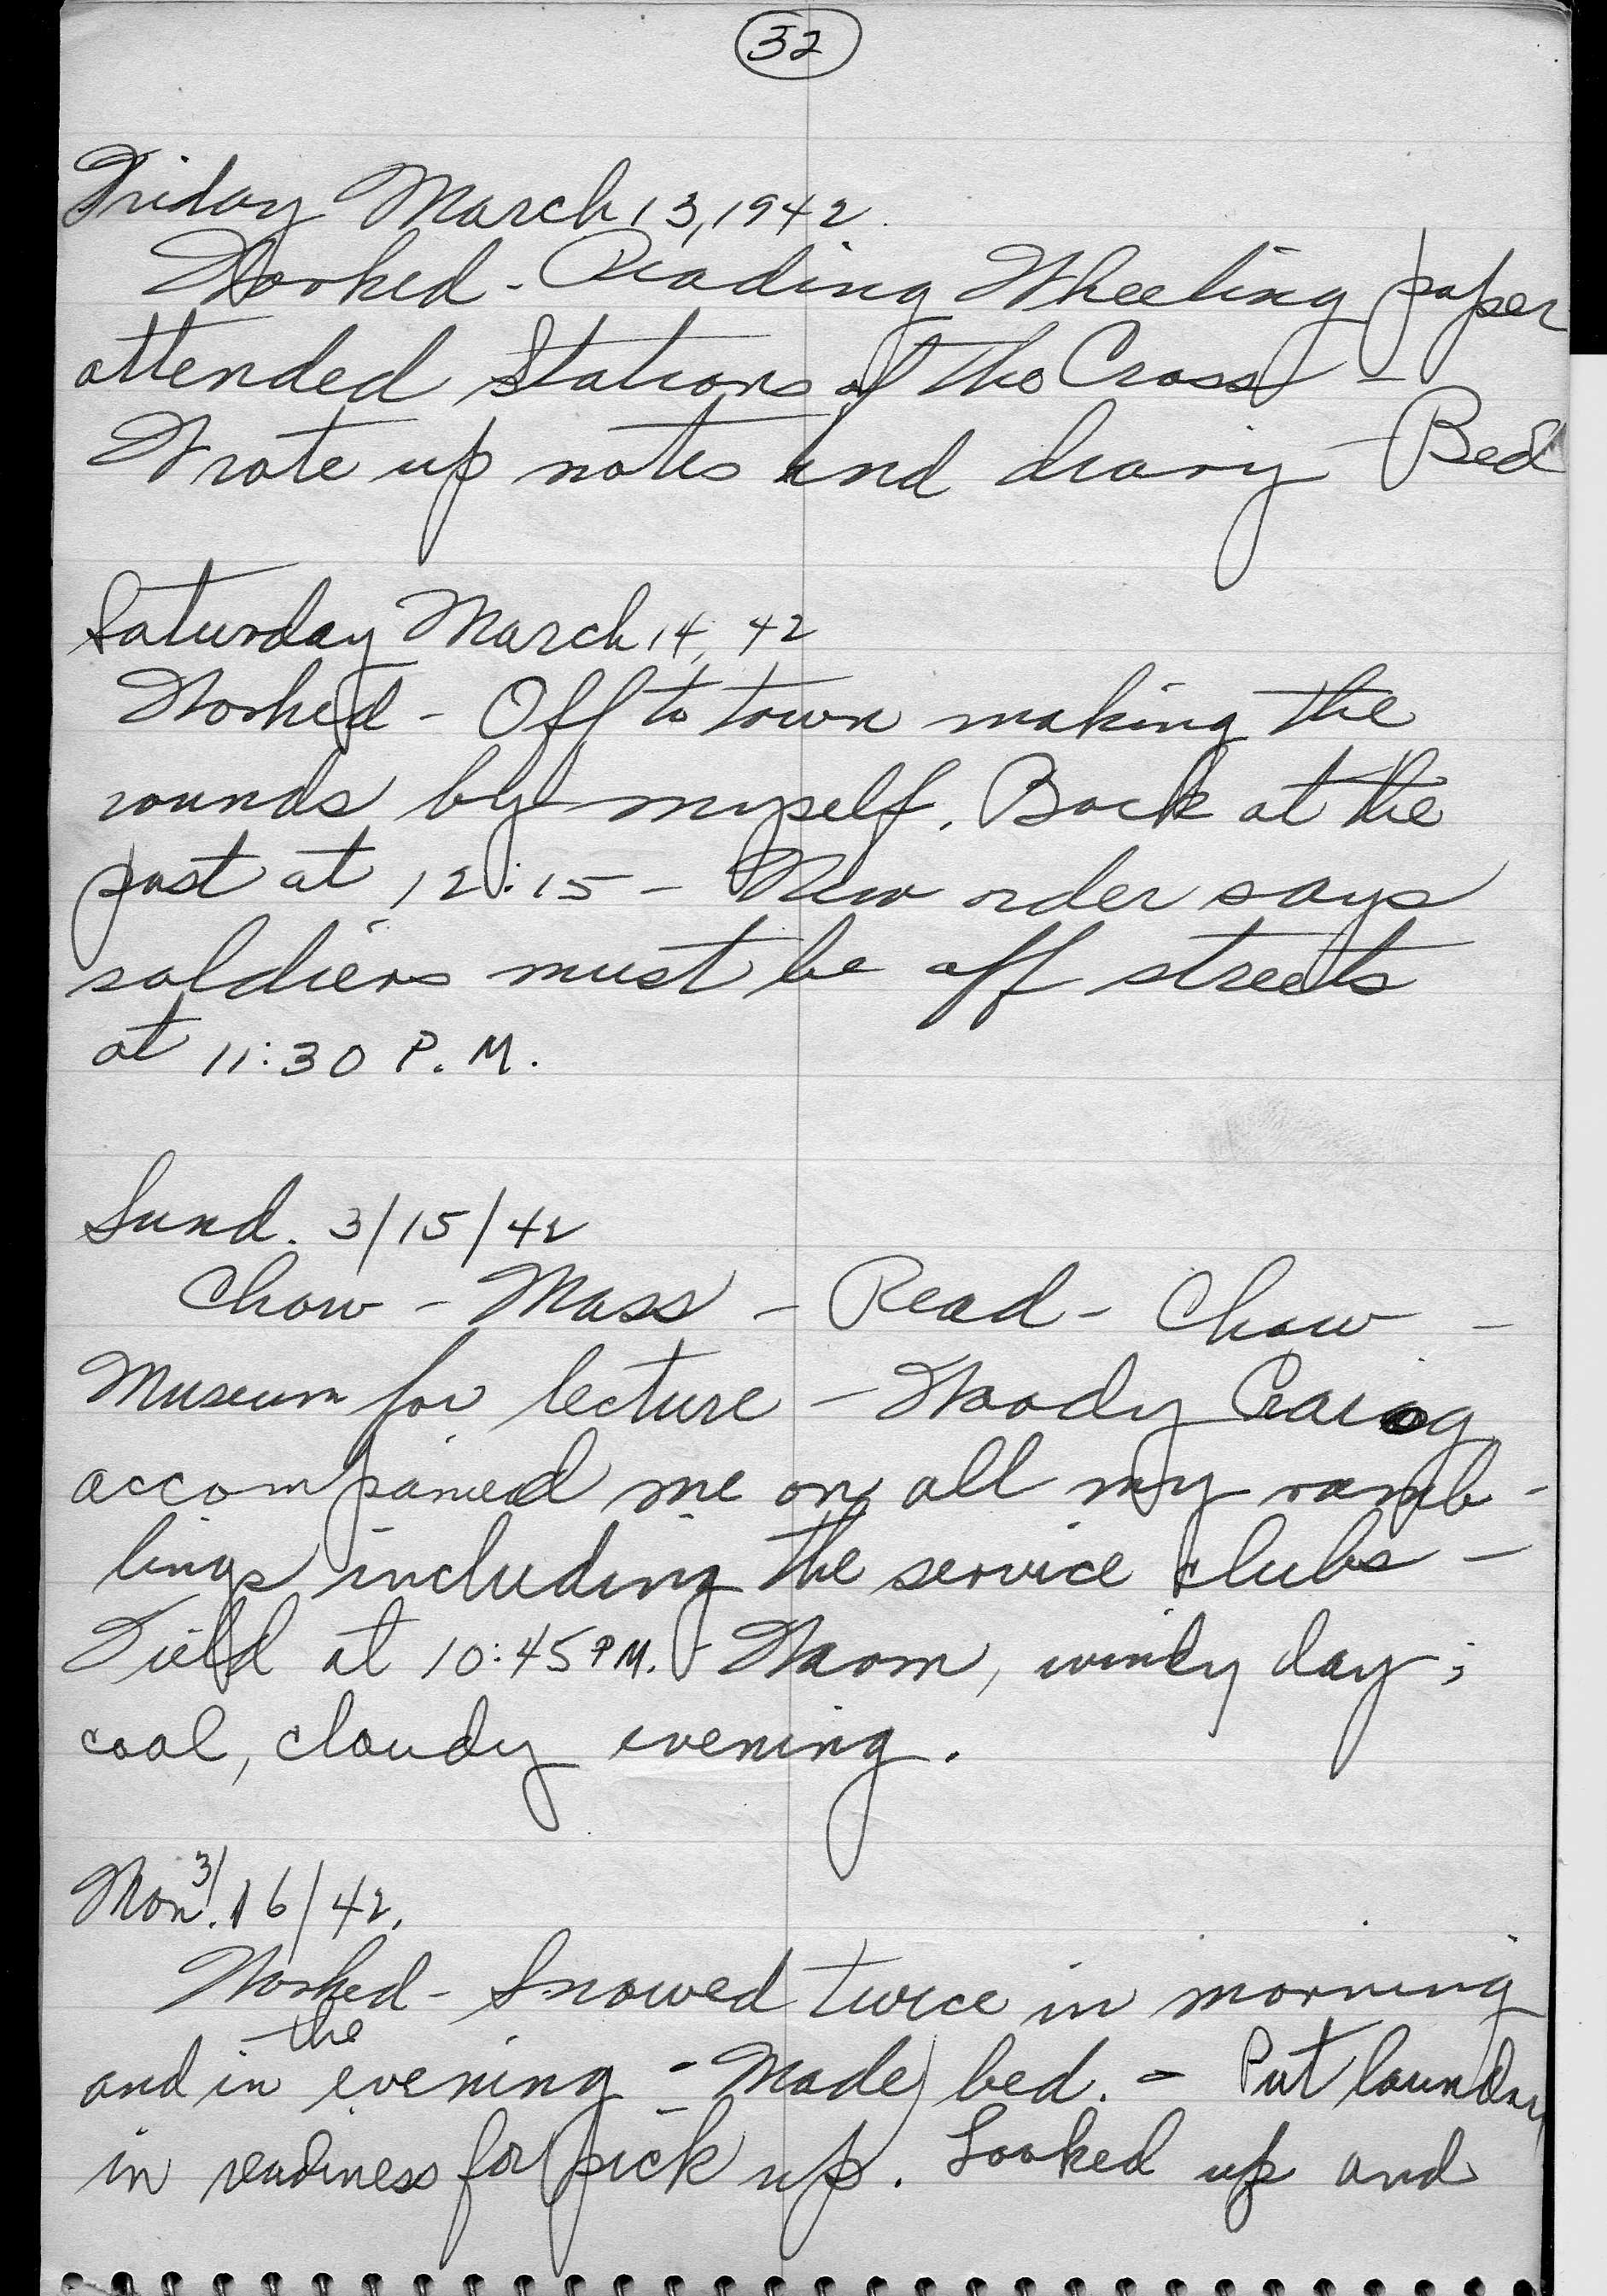 32
Friday March 13, 1942.
Worked - Reading Wheeling paper
attended Stations of the Cross -
Wrote up notes and diary - Bed
Saturday March 14, 42
Worked - Off to town making the
rounds by myself. Back at the
post at 12:15 - New order says
soldiers must be off streets
at 11:30 P.M.
Sund. 3/15/42
Chow - Mass - Read - Chow -
Museum for lecture - Woody Craig
accompanied me on all my ramb-
lings including the service clubs -
Field at 10:45 PM. - Warm, windy day;
cool, cloudy evening.
Mon. 3/16/42.
Worked - Snowed twice in morning
and in the evening - Made bed. - Put laundry
in readiness for pick up. Looked up and